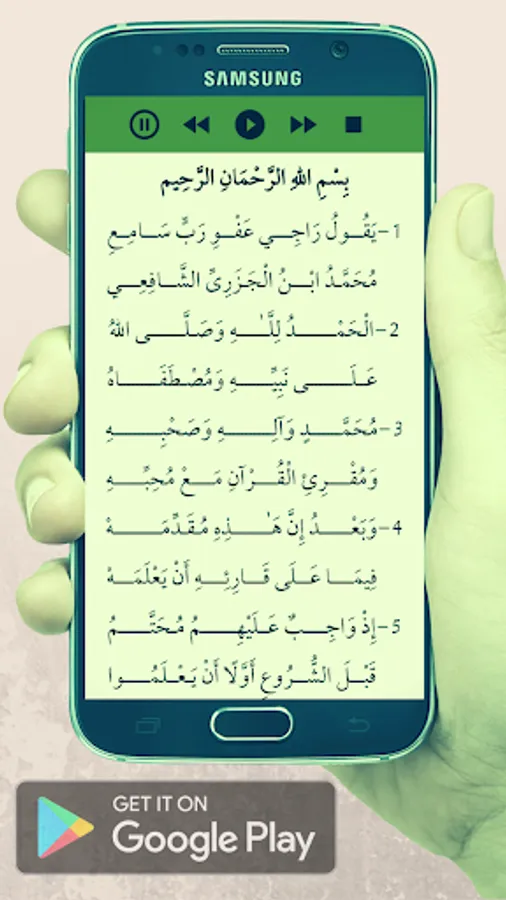 SAMSUNG
بِسْمِ اللهِ الرَّحْمَانِ الرَّحِيم
1-يَقُولُ رَاجِي عَفْوِ رَبٍّ سَامِعِ
مُحَمَّدُ ابْنُ الْجَزَرِيِّ الشَّافِعِي
2-الْحَمْدُ لِلَّهِ وَصَلَّى اللهُ
عَلَى نَبِيِّهِ وَمُصْطَفَاهُ
3-مُحَمَّدٍ وَآلِهِ وَصَحْبِهِ
وَمُقْرِئِ الْقُرْآنِ مَعْ مُحِبِّهِ
4-وَبَعْدُ إِنَّ هَذِهِ مُقَدِّمَهْ
فِيمَا عَلَى قَارِئِهِ أَنْ يَعْلَمَهْ
5-إِذْ وَاجِبٌ عَلَيْهِمُ مُحَتَّمُ
قَبْلَ الشُّرُوعِ أَوَّلًا أَنْ يَعْلَمُوا
GET IT ON
Google Play